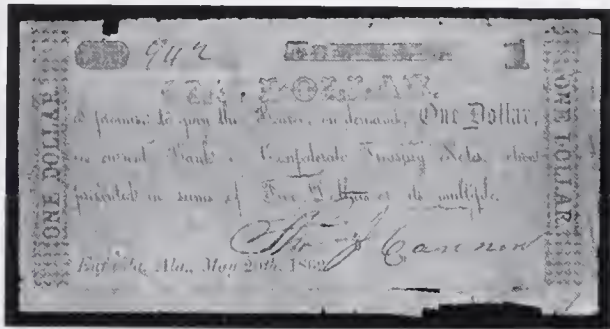 942 1
I promise to pay the Bearer, on demand, One Dollar,
in current Bank or Confederate Treasury Notes, when
presented in sums of Five Dollars or its multiple.
Cannon
City, Ala., May 20th, 1862
ONE DOLLAR
ONE DOLLAR